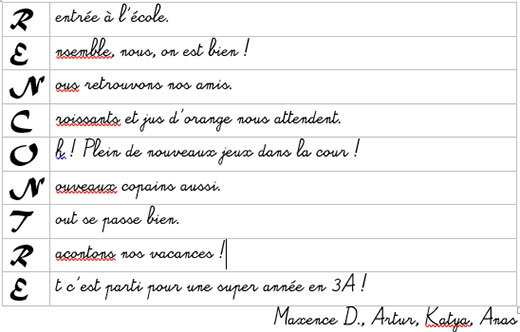 R entrée à l'école.
E nsemble, nous, on est bien !
N ous retrouvons nos amis.
C roissants et jus d'orange nous attendent.
O h ! Plein de nouveaux jeux dans la cour !
N ouveaux copains aussi.
T out se passe bien.
R acontons nos vacances !
E t c'est parti pour une super année en 3A !
Maxence D., Artur, Katya, Anas